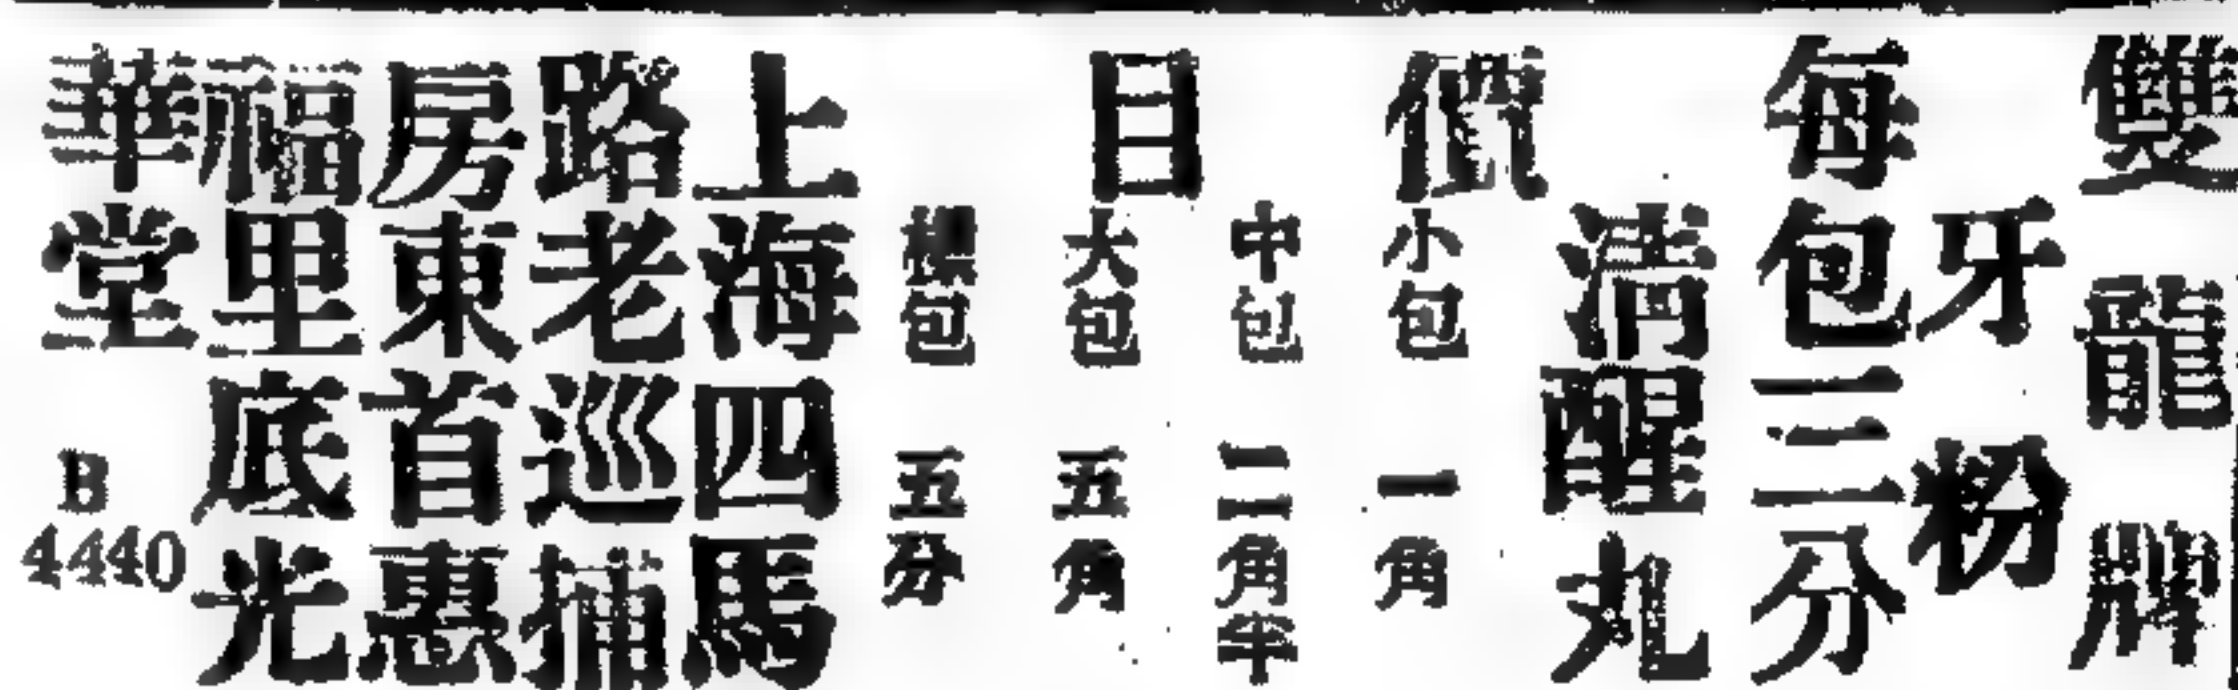 雙龍牌
牙粉
每包三分
清醒丸
價目
小包 一角
中包 二角半
大包 五角
樣包 五分
上海四馬
路老巡捕
房東首惠
福里底光
華堂
B
4440